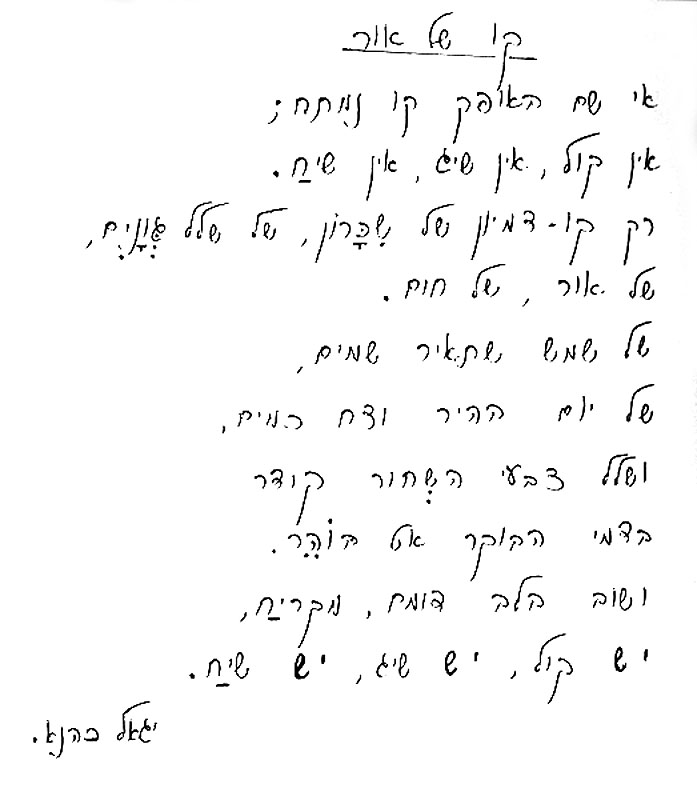 קו של אור
אי שם האופק קו נִמְתח;
אין קול, אין שיג, אין שיחַ.
רק קו-דמיון של שִכָּרוֹן, של שלל גְוָנִים,
של אור, של חום.
של שמש שתאיר שמים,
של יום ההיר וצח כמים,
ושלל צבעי השְחור קודר
בדמי הבוקר אט בוֹהֵר.
ושוב הלב דומה, מקריחַ,
יש קול, יש שיג, יש שיחַ.
יגאל כהנא.